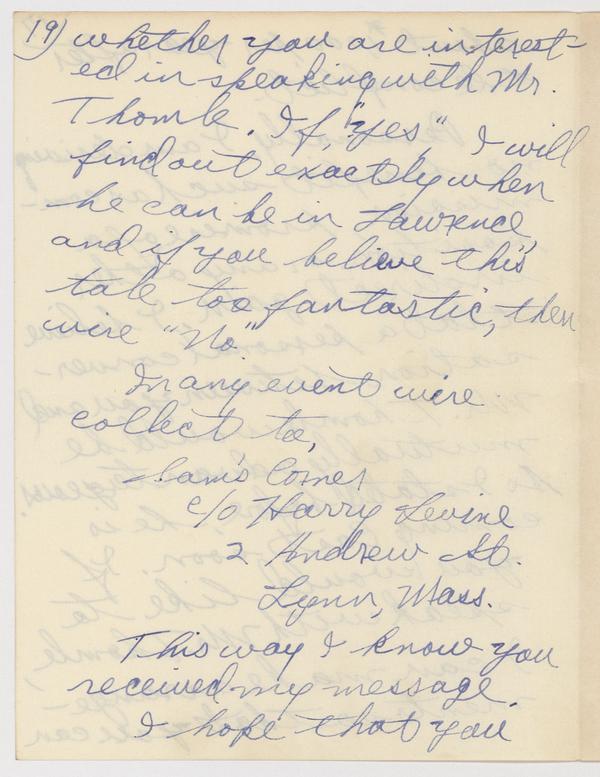 19) whether you are interest-
ed in speaking with Mr.
Thomb. If, "yes", I will
find out exactly when
he can be in Lawrence,
and if you believe this
tale too fantastic, then
wire "No."
In any event wire
collect to,
Sam's Corner
c/o Harry Levine
2 Andrew St.
Lynn, Mass.
This way I know you
received my message.
I hope that you